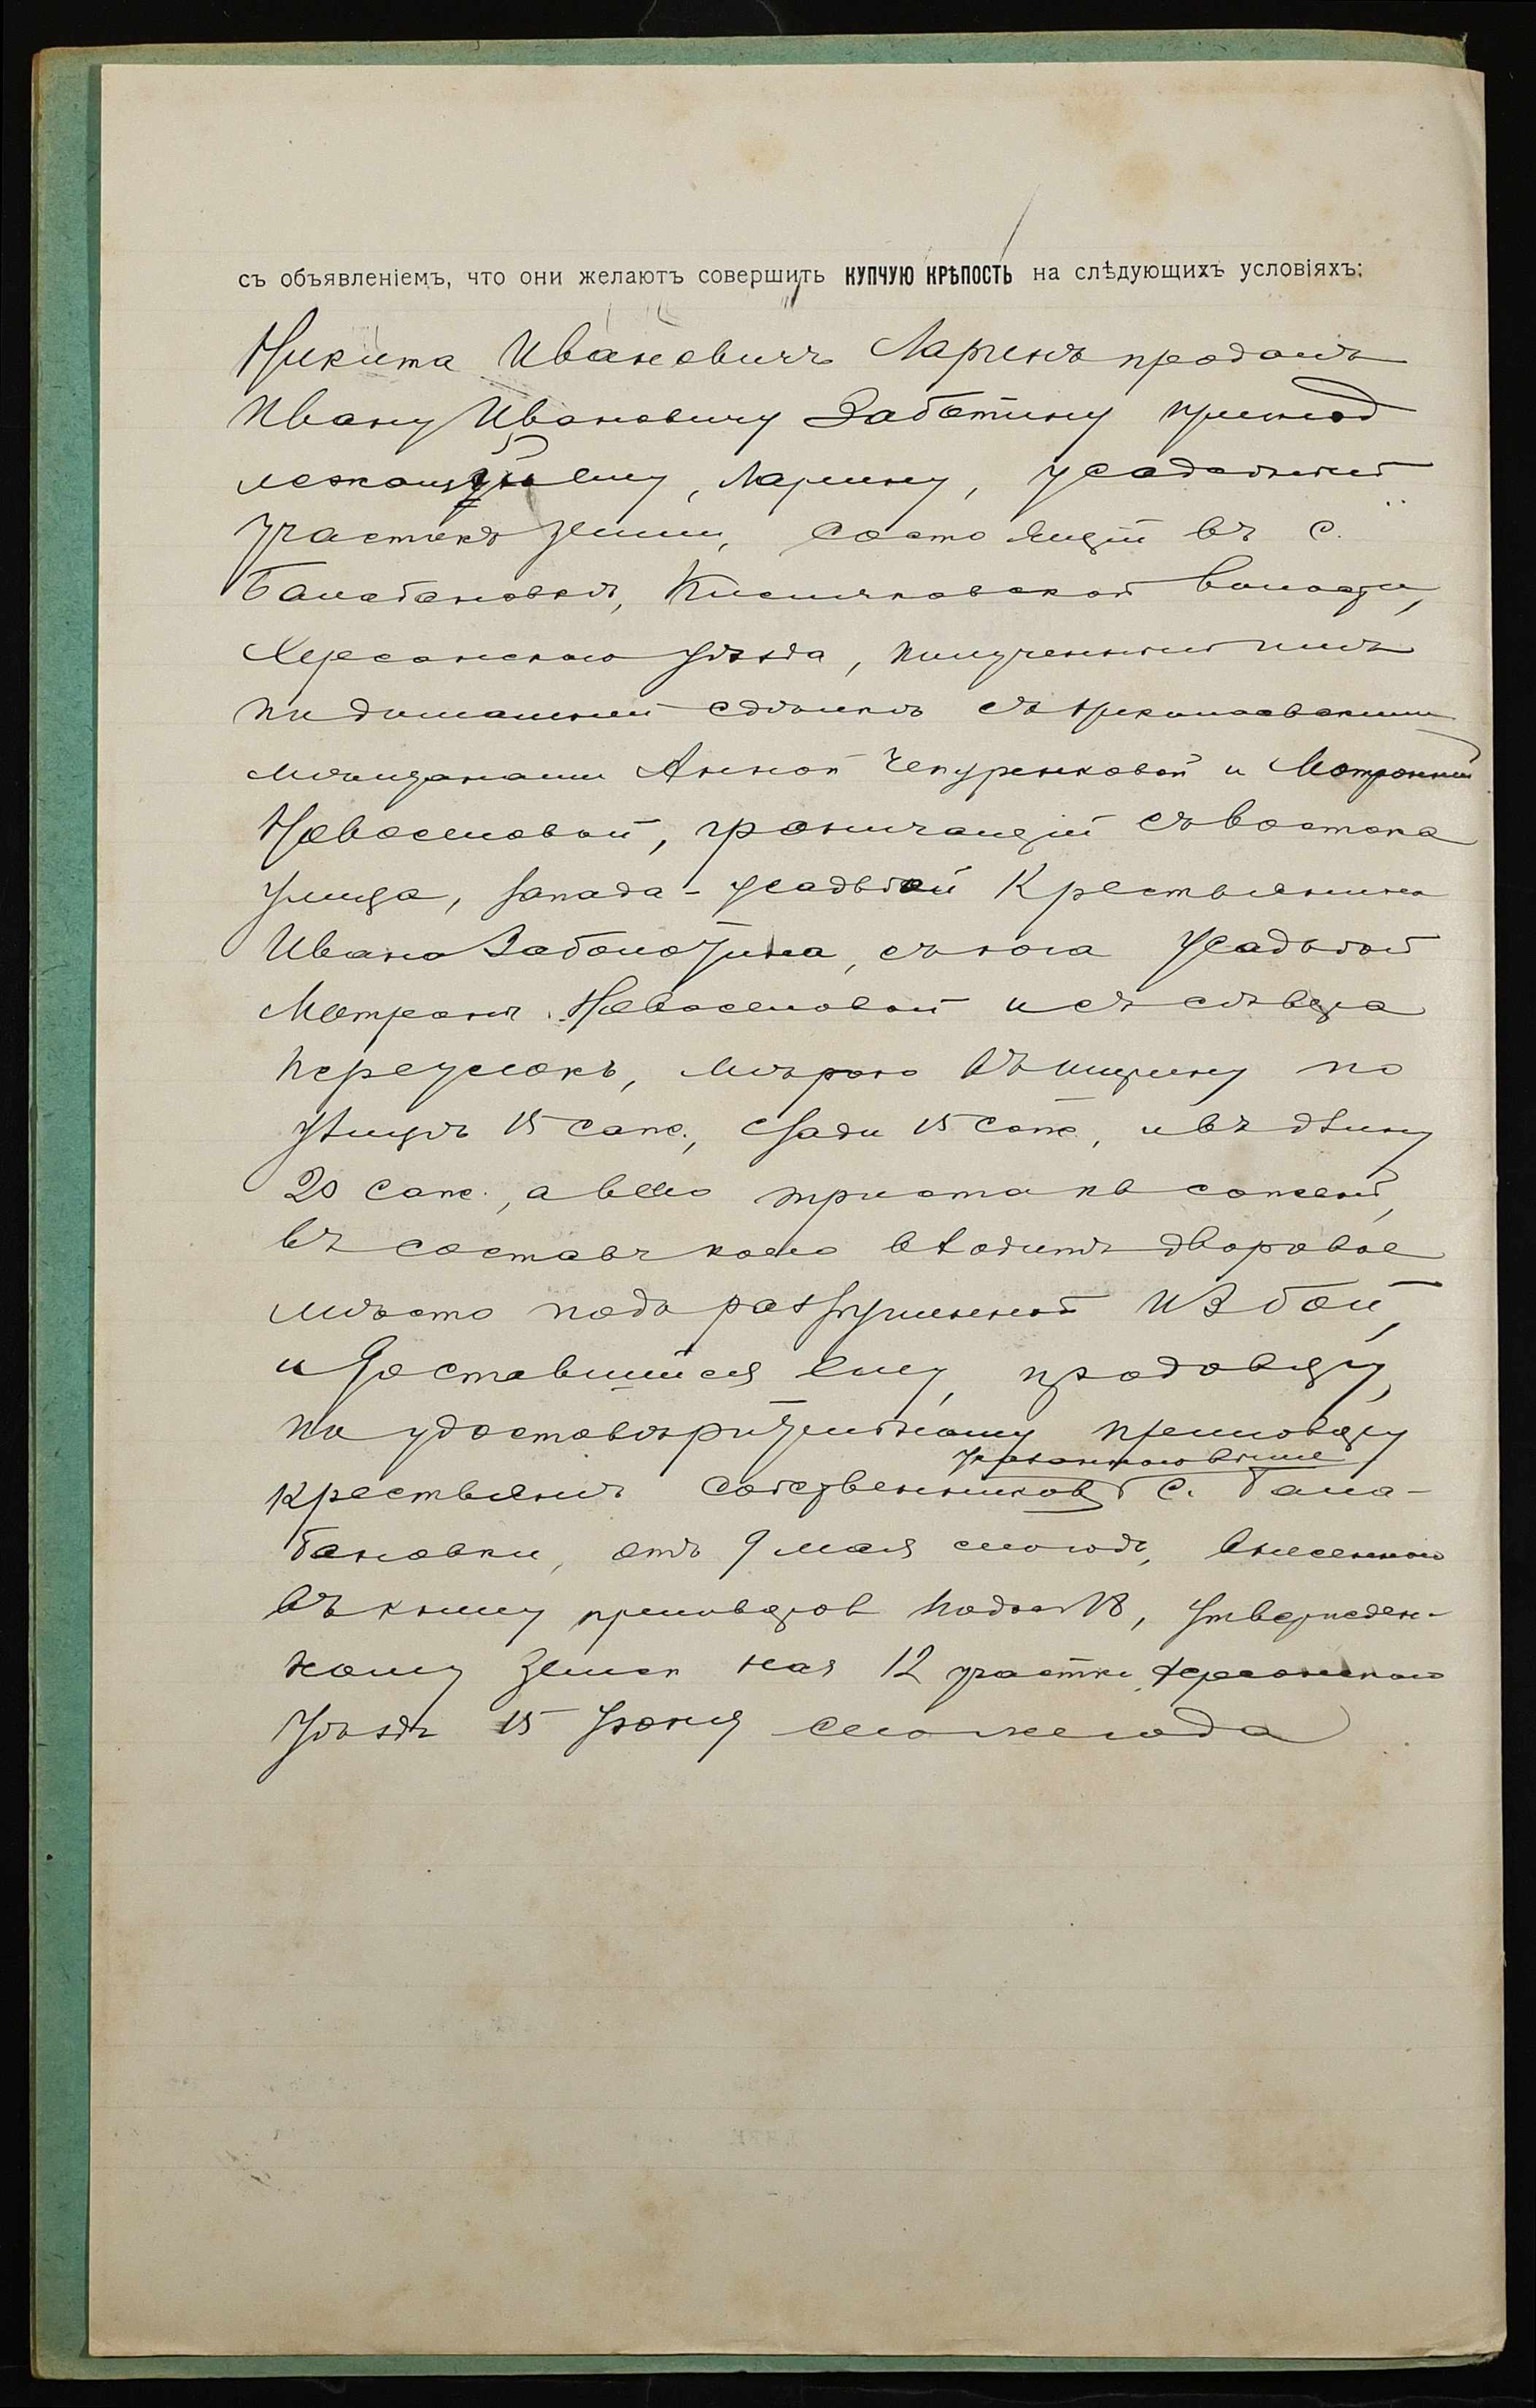 съ объявленіемъ, что они желаютъ совершить КУПЧУЮ КРѢПОСТЬ на слѣдующихъ условіяхъ:
Никита Ивановичъ Ларинъ продалъ
Ивану Ивановичу Заботину принад
лежащій ему, Ларину, усадебный
участокъ земли, состоящій въ с.
Балабановкѣ, Кисляковской волости,
Херсонскаго уѣзда, полученный имъ
по домашней сдѣлкѣ съ николаевскими
мѣщанами Анной Чепуренковой и Матроной
Новоселовой, граничащій съ востока
улица, запада - усадьбой крестьянина
Ивана Заболотина, съ юга усадьбой
Матроны Новоселовой и съ сѣвера
переулокъ, мѣрою въ ширину по
улицѣ 15 саж., сзади 15 саж., и въ длину
20 саж., а всего триста кв сажень,
въ составъ коего входитъ дворовое
мѣсто подъ разрушенной избой,
и доставшійся ему, продавцу,
по удостовѣрительному приговору
указаннаго выше
крестьянъ собственниковъ с. Бала-
бановки, отъ 9 мая сего года, внесенному
въ книгу приговоров подъ № 18, утвержден-
ному Земск нач 12 участка Херсонскаго
уѣзда 15 Іюня сего же года